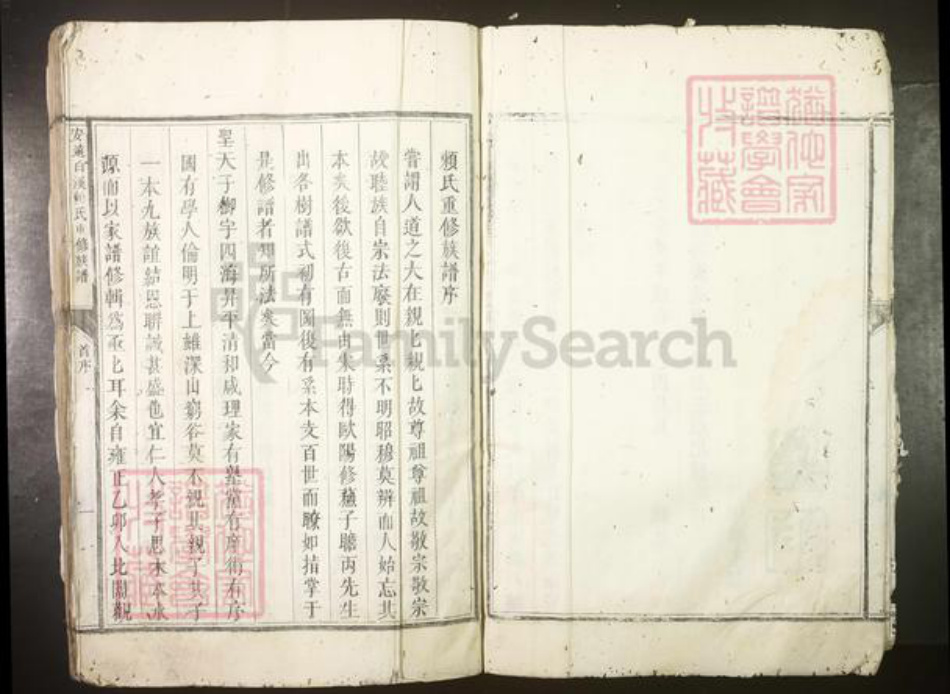 賴氏重修族譜序
嘗謂人道之大在親匕親匕故尊祖尊祖故敬宗敬宗
故睦族自宗法廢則世系不明昭穆莫辨而人始忘其
本矣後欲復古而無由朱時得歐陽修蘇子瞻丙先生
出各樹譜式初有圖後有系本支百世而瞭如指掌于
是修譜者知所法矣當今
聖天子御宇四海昇平清和咸理家有塾黨有庠術有序
國有學人倫明于上雖深山窮谷莫不親其親子其子
一本九族誼結恩聯誠甚盛也宜仁人孝子思木本水
源而以家譜修輯為亟匕耳余自雍正乙卯入比闈觀
安遠白溪賴氏重修族譜
首序
一
FamilySearch
譜學會
收藏